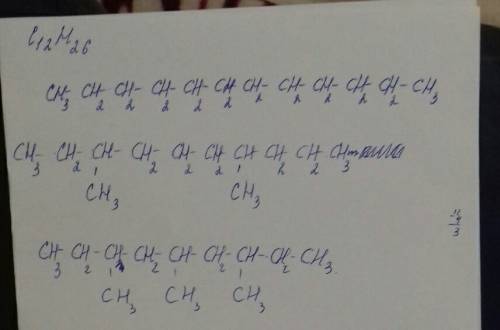 C12H26
CH3 CH2- CH2- CH2- CH2- CH2- CH2- CH2- CH2- CH2- CH2- CH3
CH3- CH2- CH- CH2- CH2- CH2- CH- CH2- CH2- CH3
CH3 CH3
CH3- CH2- CH- CH2- CH- CH2- CH- CH2- CH3.
CH3 CH3 CH3